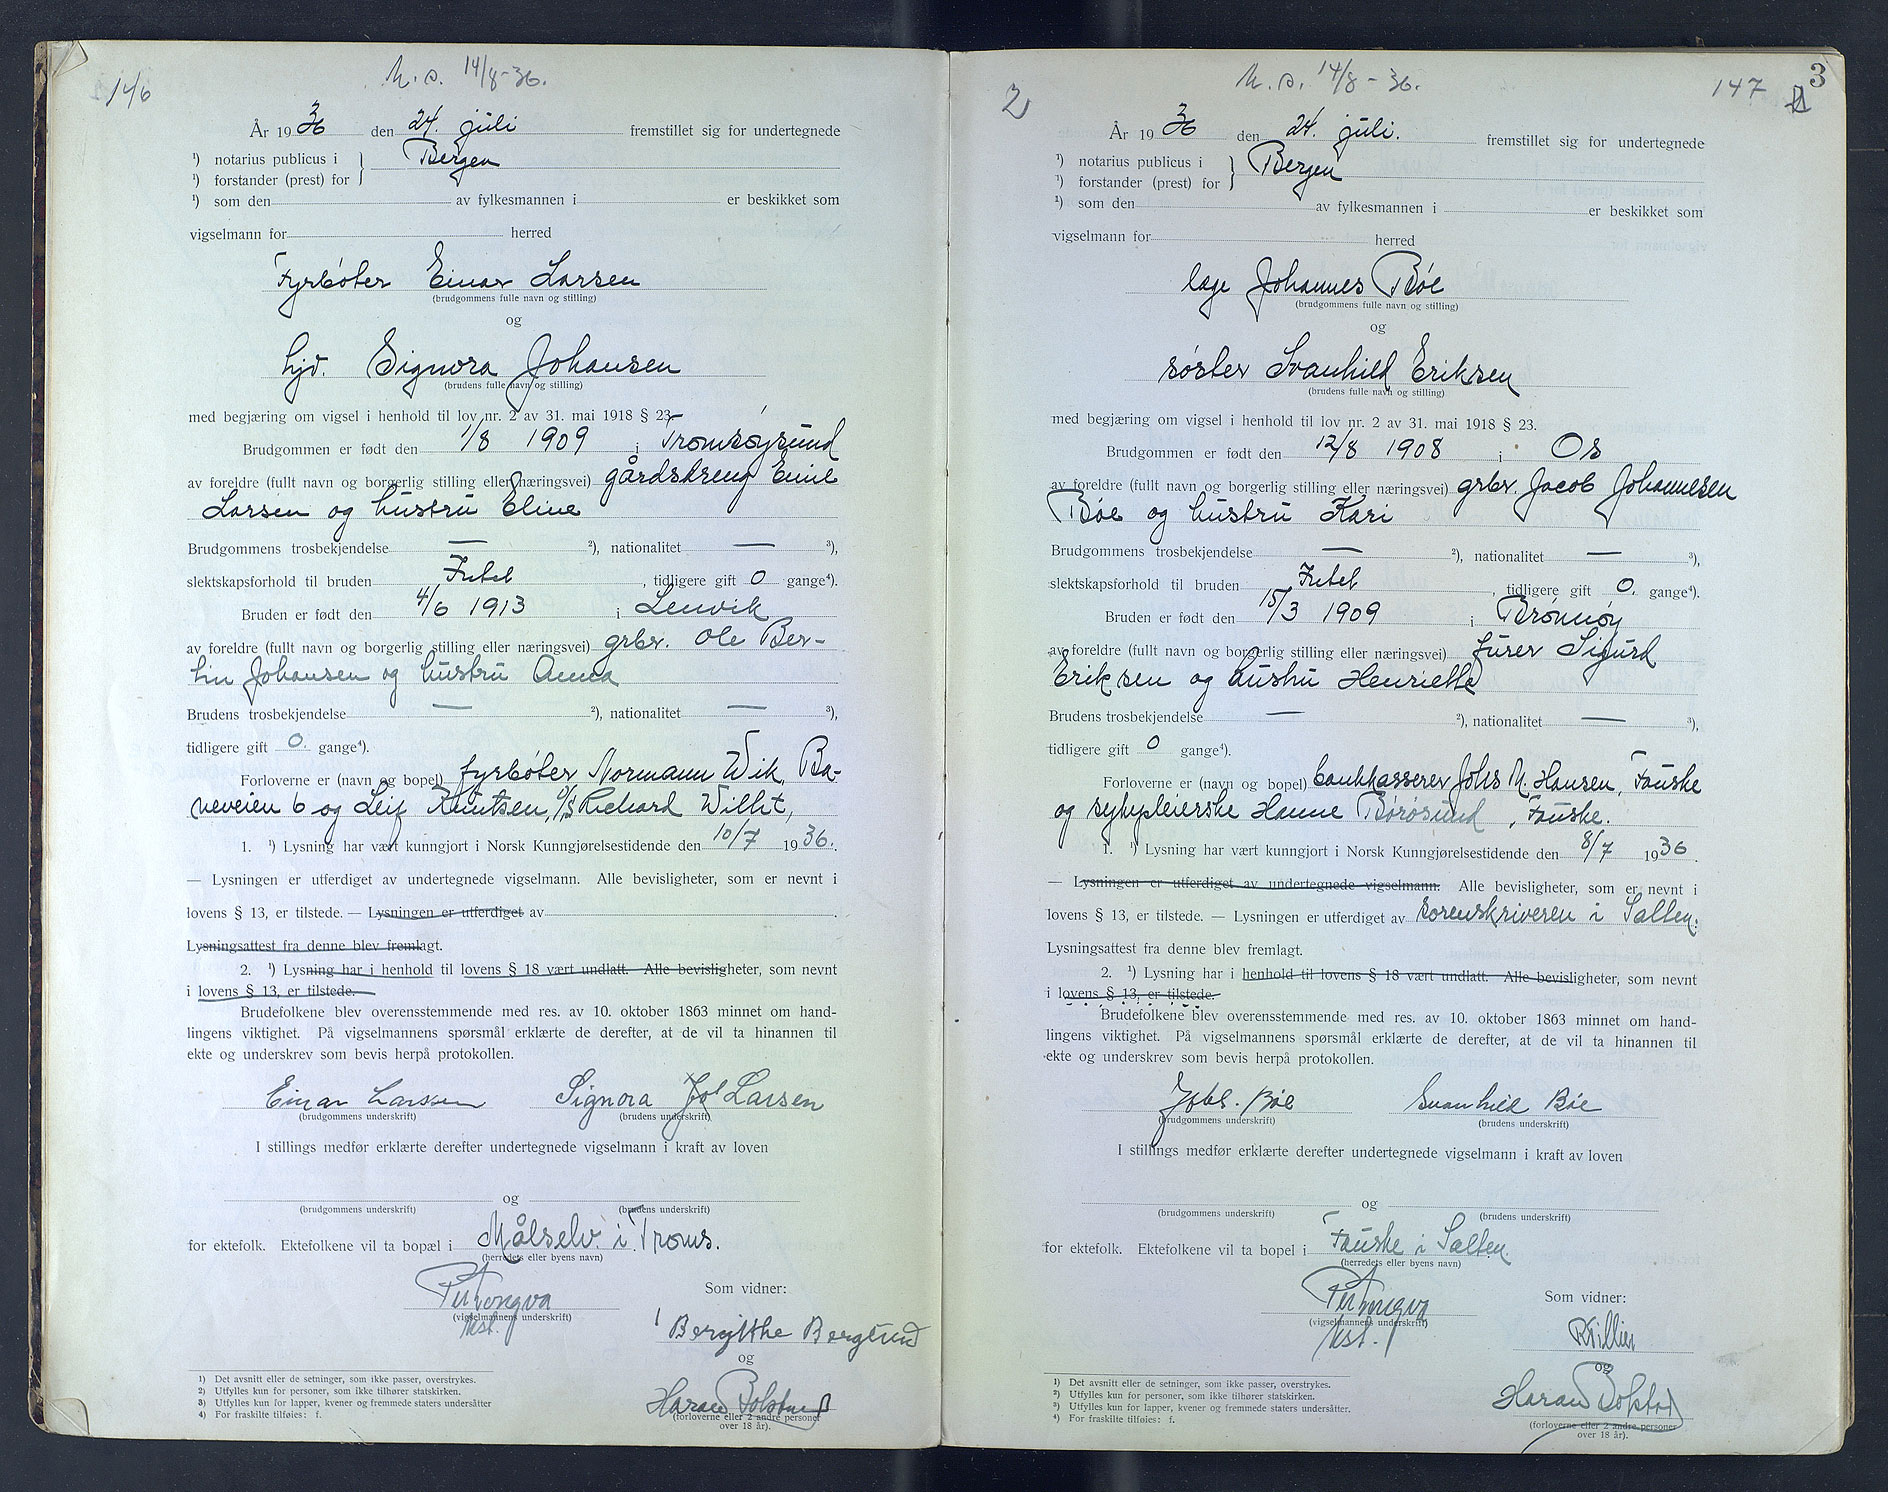 146
M. s. 14/8-36.
År 1936 den 24. juli fremstillet sig for undertegnede
¹) notarius publicus i } Bergen
¹) forstander (prest) for
¹) som den av fylkesmannen i er beskikket som
vigselmann for herred
Fyrbøter Einar Larsen
(brudgommens fulle navn og stilling)
og
hjv. Signora Johansen
(brudens fulle navn og stilling)
med begjæring om vigsel i henhold til lov nr. 2 av 31. mai 1918 § 23.
Brudgommen er født den 1/8 1909 i Tromsøysund
av foreldre (fullt navn og borgerlig stilling eller næringsvei) gårdsdreng Emil
Larsen og hustru Eline
Brudgommens trosbekjendelse — ²), nationalitet — ³),
slektskapsforhold til bruden Intet, tidligere gift 0 gange⁴).
Bruden er født den 4/6 1913 i Lenvik
av foreldre (fullt navn og borgerlig stilling eller næringsvei) grbr. Ole Ber-
tin Johansen og hustru Anna
Brudens trosbekjendelse — ²), nationalitet — ³),
tidligere gift 0. gange⁴).
Forloverne er (navn og bopel) fyrbøter Normann Wik, Ba-
neveien 6 og Leif Knutsen, D/S Richard Willit,
1. ¹) Lysning har vært kunngjort i Norsk Kunngjørelsestidende den 10/7 1936.
— Lysningen er utferdiget av undertegnede vigselmann. Alle bevisligheter, som er nevnt i
lovens § 13, er tilstede. — Lysningen er utferdiget av .
Lysningsattest fra denne blev fremlagt.
2. ¹) Lysning har i henhold til lovens § 18 vært undlatt. Alle bevisligheter, som nevnt
i lovens § 13, er tilstede.
Brudefolkene blev overensstemmende med res. av 10. oktober 1863 minnet om hand-
lingens viktighet. På vigselmannens spørsmål erklærte de derefter, at de vil ta hinannen til
ekte og underskrev som bevis herpå protokollen.
Einar Larssen Signora Joh Larsen
(brudgommens underskrift) (brudens underskrift)
I stillings medfør erklærte derefter undertegnede vigselmann i kraft av loven
og
(brudgommens underskrift) (brudens underskrift)
for ektefolk. Ektefolkene vil ta bopæl i Målselv i Troms.
(herredets eller byens navn)
(vigselmannens underskrift)
kst.
Som vidner:
Bergitthe Berglund
og
Harald Bolstad
(forloverne eller 2 andre personer
over 18 år).
1) Det avsnitt eller de setninger, som ikke passer, overstrykes.
2) Utfylles kun for personer, som ikke tilhører statskirken.
3) Utfylles kun for lapper, kvener og fremmede staters undersåtter
4) For fraskilte tilføies: f.
2
M. s. 14/8-36.
147
3
År 1936 den 24. juli. fremstillet sig for undertegnede
¹) notarius publicus i } Bergen
¹) forstander (prest) for
¹) som den av fylkesmannen i er beskikket som
vigselmann for herred
læge Johannes Bøe
(brudgommens fulle navn og stilling)
og
søster Svanhild Eriksen
(brudens fulle navn og stilling)
med begjæring om vigsel i henhold til lov nr. 2 av 31. mai 1918 § 23.
Brudgommen er født den 12/8 1908 i Os
av foreldre (fullt navn og borgerlig stilling eller næringsvei) grbr. Jacob Johannesen
Bøe og hustru Kari
Brudgommens trosbekjendelse — ²), nationalitet — ³),
slektskapsforhold til bruden Intet, tidligere gift 0. gange⁴).
Bruden er født den 15/3 1909 i Brønnøy
av foreldre (fullt navn og borgerlig stilling eller næringsvei) furer Sigurd
Eriksen og hustru Henriette
Brudens trosbekjendelse — ²), nationalitet — ³),
tidligere gift 0 gange⁴).
Forloverne er (navn og bopel) bankkasserer Johs M. Hansen, Fauske
og sykepleierske Hanne Børøsund, Fauske.
1. ¹) Lysning har vært kunngjort i Norsk Kunngjørelsestidende den 8/7 1936.
— Lysningen er utferdiget av undertegnede vigselmann. Alle bevisligheter, som er nevnt i
lovens § 13, er tilstede. — Lysningen er utferdiget av sorenskriveren i Salten.
Lysningsattest fra denne blev fremlagt.
2. ¹) Lysning har i henhold til lovens § 18 vært undlatt. Alle bevisligheter, som nevnt
i lovens § 13, er tilstede.
Brudefolkene blev overensstemmende med res. av 10. oktober 1863 minnet om hand-
lingens viktighet. På vigselmannens spørsmål erklærte de derefter, at de vil ta hinannen til
ekte og underskrev som bevis herpå protokollen.
Johs. Bøe Svanhild Bøe
(brudgommens underskrift) (brudens underskrift)
I stillings medfør erklærte derefter undertegnede vigselmann i kraft av loven
og
(brudgommens underskrift) (brudens underskrift)
for ektefolk. Ektefolkene vil ta bopel i Fauske i Salten.
(herredets eller byens navn)
(vigselmannens underskrift)
kst.
Som vidner:
og
Harald Bolstad
(forloverne eller 2 andre personer
over 18 år).
1) Det avsnitt eller de setninger, som ikke passer, overstrykes.
2) Utfylles kun for personer, som ikke tilhører statskirken.
3) Utfylles kun for lapper, kvener og fremmede staters undersåtter.
4) For fraskilte tilføies: f.